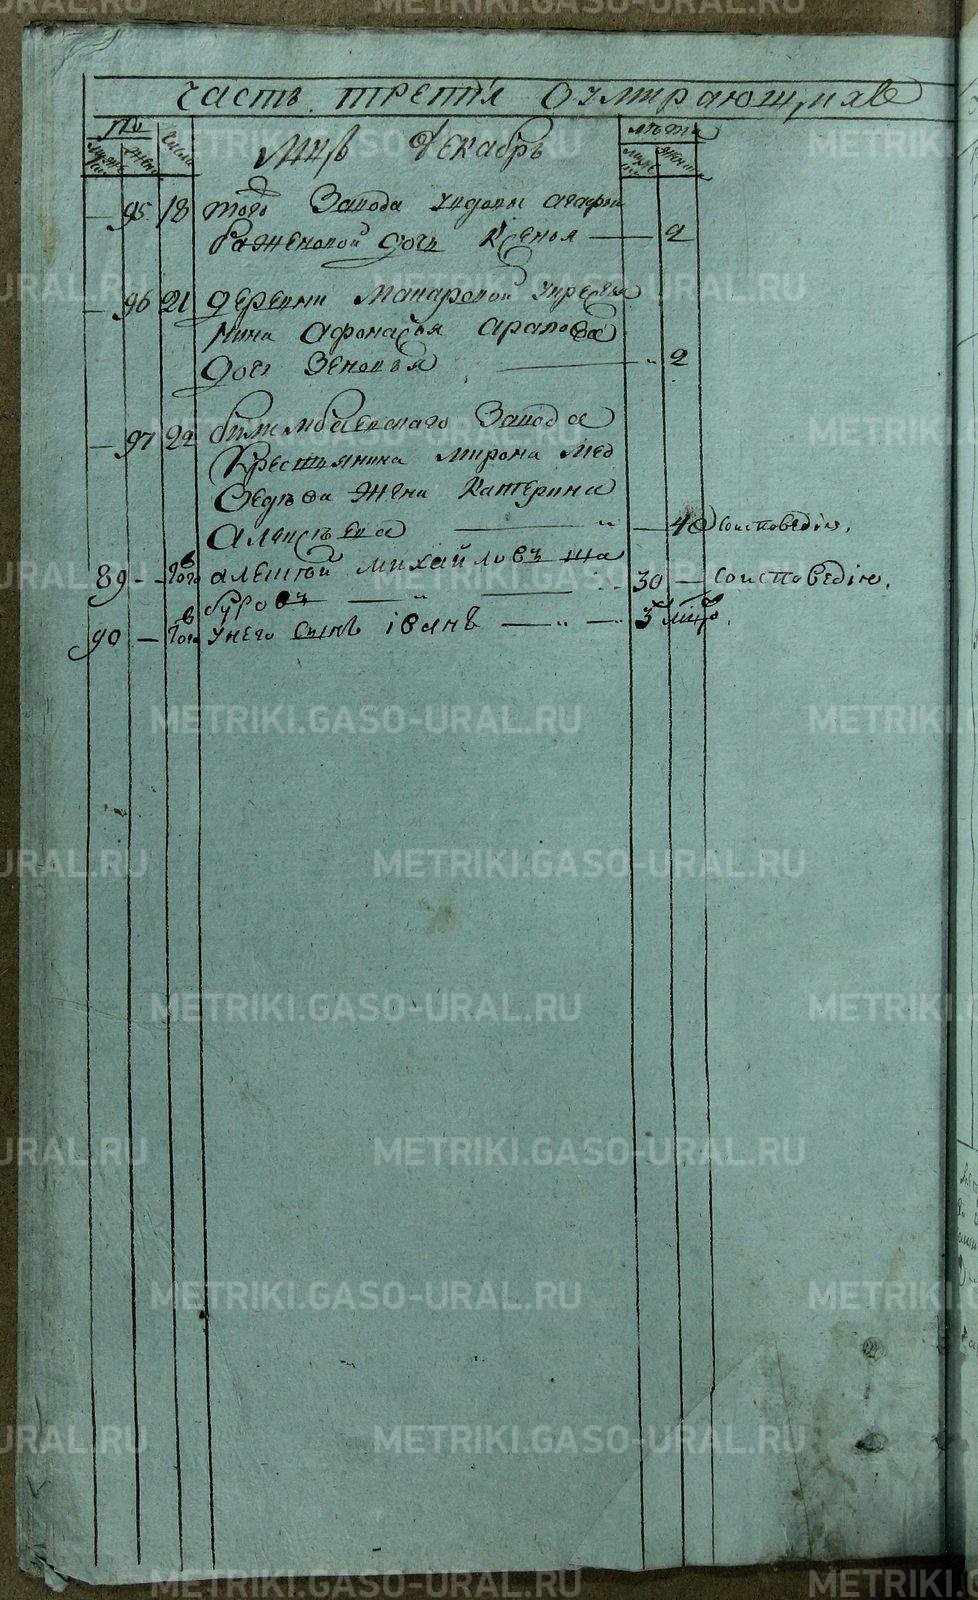 часть третія Оумирающихъ
По
числа
лѣта
мцъ Декабрь
95 18 того Завода
баженовой дочь Ксенья — 2
96 21 деревни Макаровой
нина Афонасья арапова
дочь Зеновья — 2
97 22 билимбаевскаго Завода
Крестьянина мирона мед
ведѣва жена Катерина
Алексѣева — 40 соисповедію.
89 — того алексѣй михайловъ ша
буровъ — 30 — соисповедію.
90 — того унего сынъ іванъ — 3
METRIKI.GASO-URAL.RU